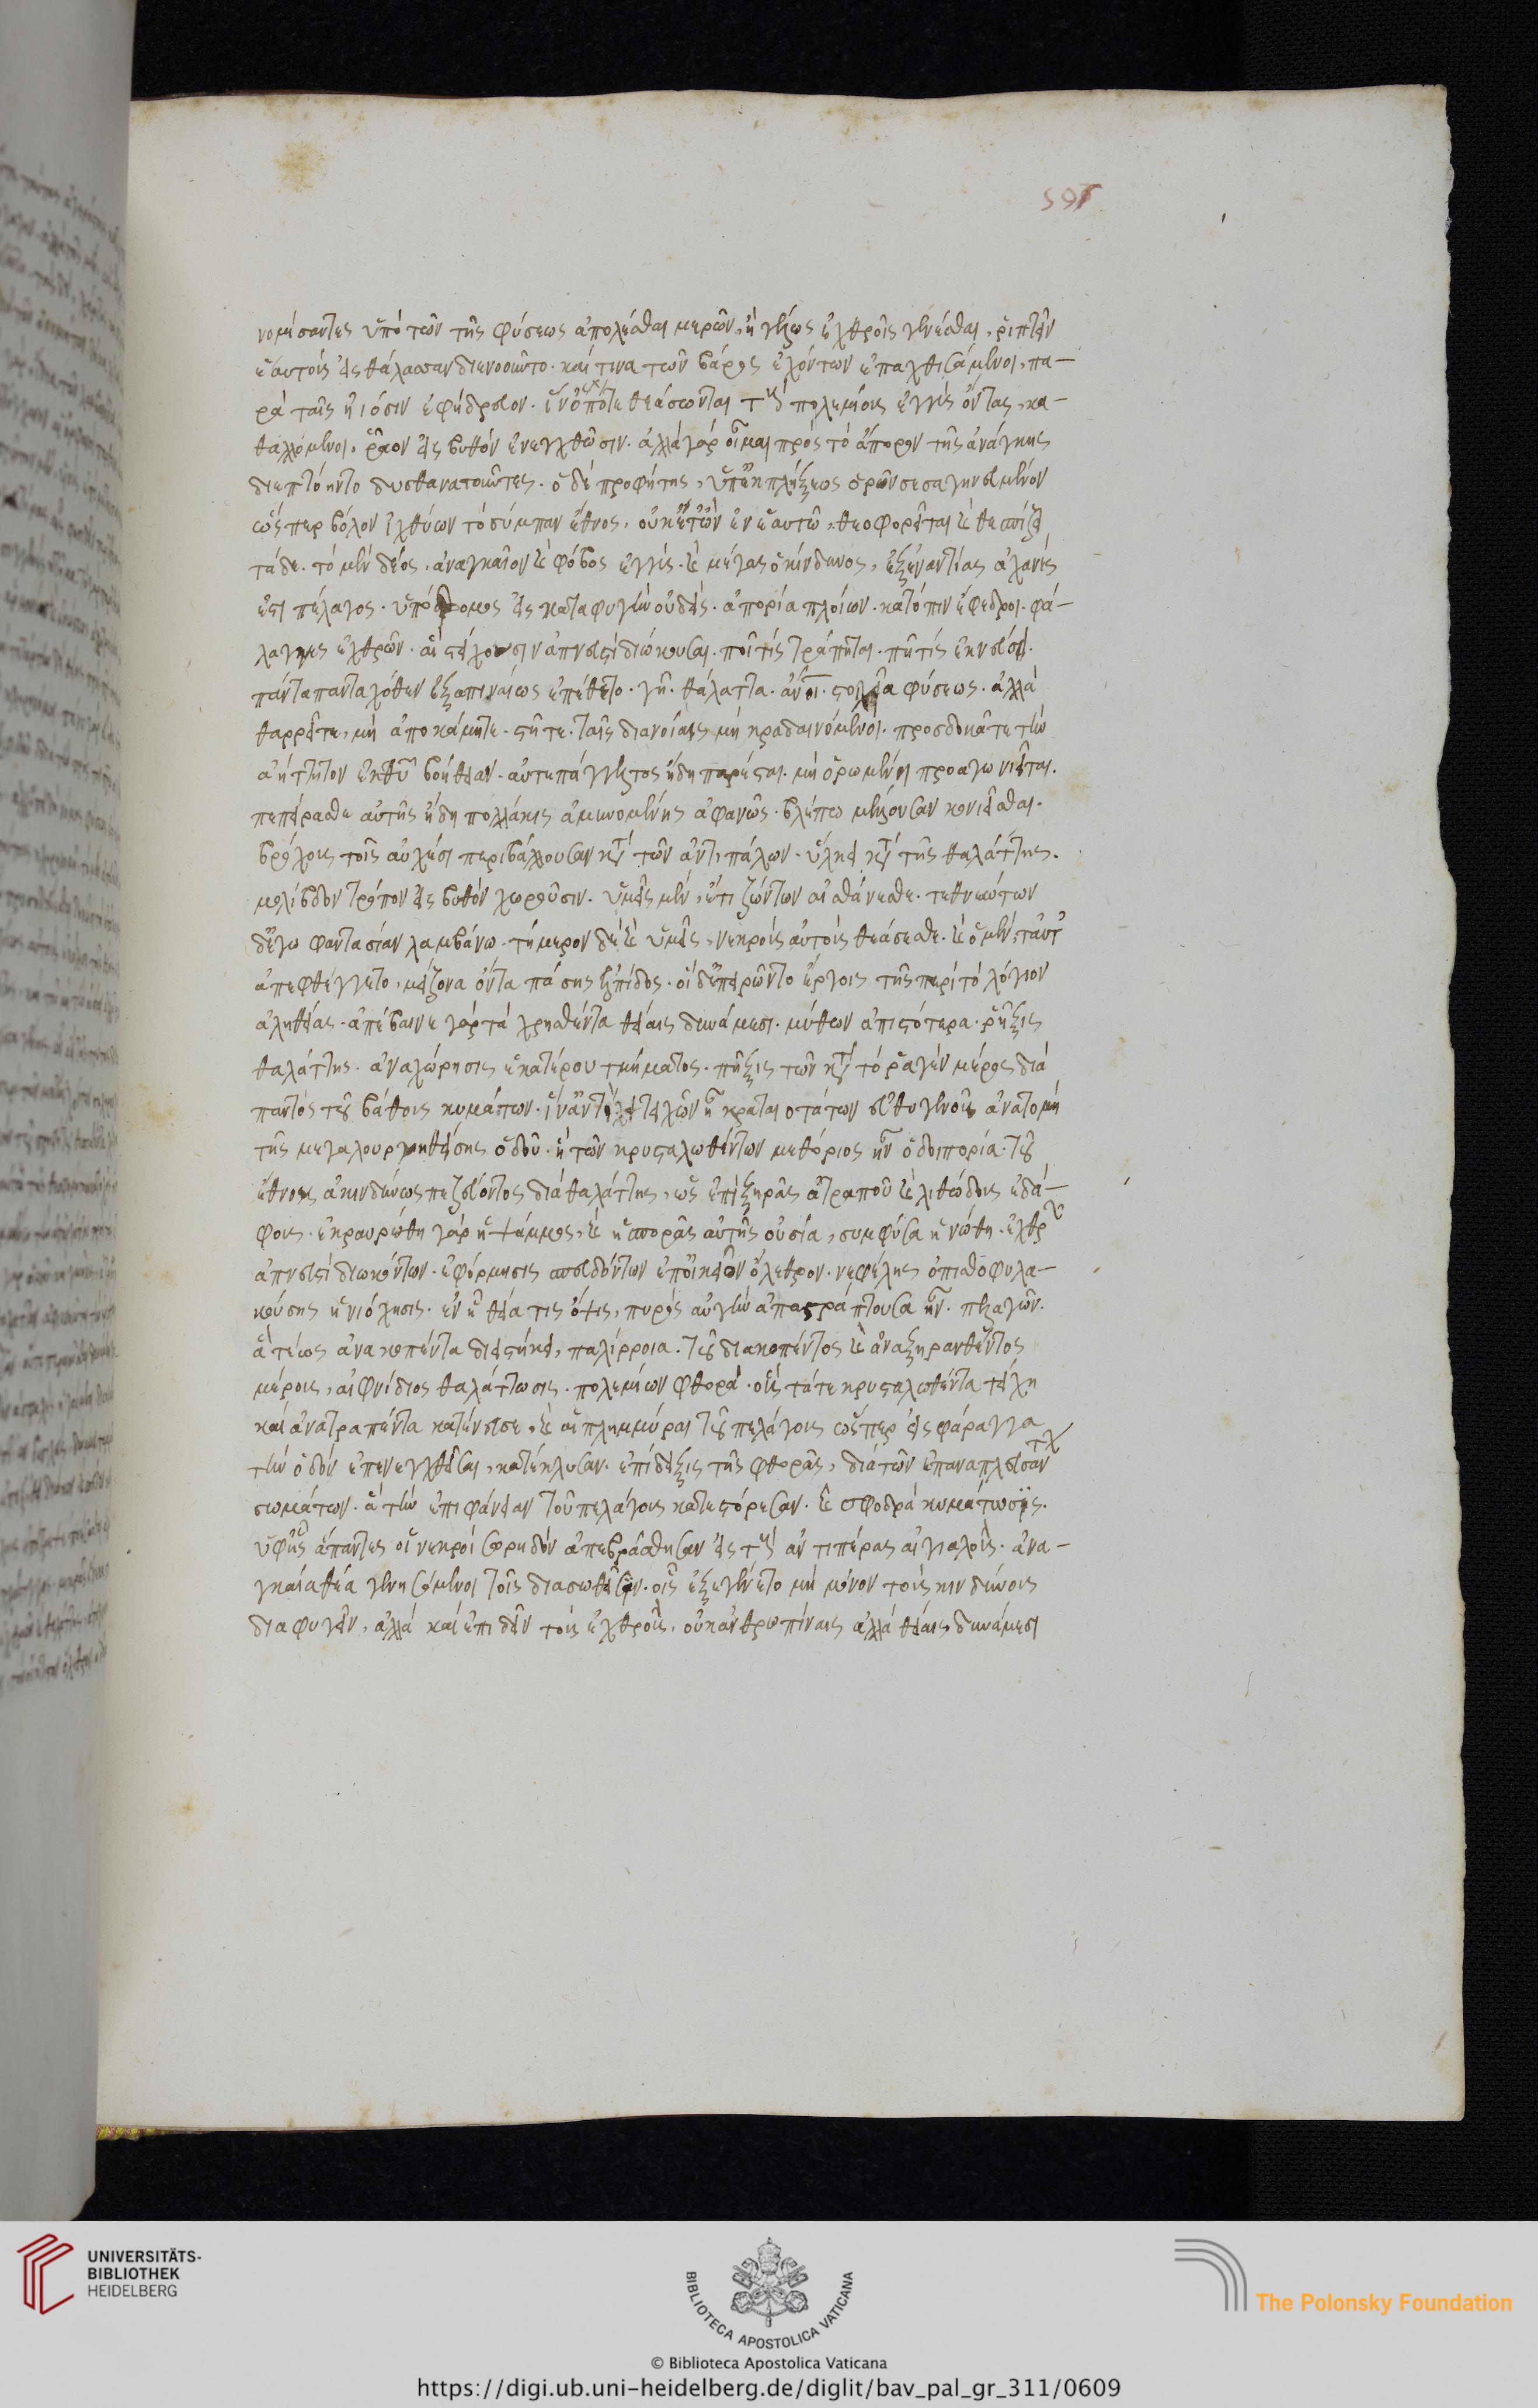 595
νομίσαντες ὑπὸ τῶν τῆς φύσεως ἀπολέσθαι μερῶν, ἢ γέλως ἐχθροῖς γενέσθαι, ῥιπτεῖν
ἑαυτοὺς εἰς θάλασσαν διενοοῦντο. καί τινα τῶν βάρος ἐχόντων ἐπαχθισάμενοι, πα–
ρὰ ταῖς ἠϊόσιν ἐφήδρευον. ἵν' ὁπότε θεάσωνται τοὺς πολεμίους ἐγγὺς ὄντας, κα–
θαλλόμενοι, ῥᾶον εἰς βυθὸν ἐνεχθῶσιν. ἀλλὰ γὰρ οἱ μὲν πρὸς τὸ ἄπορον τῆς ἀνάγκης
διεπτόηντο δυσθανατοῦντες. ὁ δὲ προφήτης, ὑπ' ἐκπλήξεως ὁρῶν σεσαγηνευμένον
ὥσπερ βόλον ἰχθύων τὸ σύμπαν ἔθνος, οὐκέτ' ὢν ἐν ἑαυτῷ, θεοφορεῖται καὶ θεσπίζει
τάδε. τὸ μὲν δέος, ἀναγκαῖον καὶ φόβος ἐγγὺς. καὶ μέγας ὁ κίνδυνος, ἐξεναντίας ἀχανές
ἐστι πέλαγος. ὑπόδρομος εἰς καταφυγὴν οὐδεὶς. ἀπορία πλοίων. κατόπιν ἔφεδροι. φά–
λαγγες ἐχθρῶν. αἳ στείχουσιν ἀπνευστὶ διώκουσαι. ποῖ τίς τράπηται. πῆ τίς ἐκνεύσει.
πάντα πανταχόθεν ἐξαπιναίως ἐπέθετο. γῆ. θάλαττα. ἄνοι. στοιχεῖα φύσεως. ἀλλὰ
θαρρεῖτε, μὴ ἀποκάμητε. στῆτε. ταῖς διανοίαις μὴ κραδαινόμενοι. προσδοκᾶτε τὴν
ἀήττητον ἐκ θυ βοήθειαν. αὐτεπάγγελτος ἤδη παρέσται. μὴ ὁρωμένη προαγωνιεῖται.
πεπείρασθε αὐτῆς ἤδη πολλάκις ἀμυνομένης ἀφανῶς. βλέπω μέλλουσαν κονίεσθαι.
βρόχους τοῖς αὐχέσι περιβάλλουσαν κατὰ τῶν ἀντιπάλων. ἕλκει κατὰ τῆς θαλάττης.
μολίβδου τρόπον εἰς βυθὸν χωροῦσιν. ὑμεῖς μὲν, ἔτι ζώντων αἰσθάνεσθε. τεθνεώτων
δ' ἐγὼ φαντασίαν λαμβάνω. τήμερον δὲ καὶ ὑμεῖς, νεκροὺς αὐτοὺς θεάσεσθε. καὶ ὁ μὲν, ταῦτ'
ἀπεφθέγγετο, μείζονα ὄντα πάσης ἐλπίδος. οἱ δ' ἐπειρῶντο ἔργοις τῆς περὶ τὸ λόγιον
ἀληθείας. ἀπέβαινε γὰρ τὰ χρησθέντα θείαις δυνάμεσι. μύθων ἀπιστότερα. ῥῆξις
θαλάττης. ἀναχώρησις ἑκατέρου τμήματος. πῆξις τῶν κατὰ τὸ ῥαγὲν μέρος διὰ
παντὸς τοῦ βάθους κυμάτων. ἵν' ἀντὶ τειχῶν ἦ κραταιοτάτων εὐθυγενοῦς ἀνατομὴ
τῆς μεγαλουργηθείσης ὁδοῦ. ἣ τῶν κρυσταλωθέντων μεθόριος ἦν ὁδοιπορία. τοῦ
ἔθνους ἀκινδύνως πεζεύοντος διὰ θαλάττης, ὡς ἐπὶ ξηρᾶς ἀτραποῦ καὶ λιθώδους ἐδά–
φους. ἐκραυρώθη γὰρ ἡ ψάμμος, καὶ ἡ σπορὰς αὐτῆς οὐσία, συμφῦσα ἡνώθη. ἐχθρῶν
ἀπνευστὶ διωκόντων. ἐφόρμησις σπευδόντων ἐπ' οἰκεῖον ὄλεθρον. νεφέλης ὀπισθοφυλα–
κούσης ἡνιόχησις. ἐν ᾗ θεία τις ὄψις, πυρὸς αὐγὴν ἀπαστράπτουσα ἦν. πελαγῶν.
ἃ τέως ἀνακοπέντα διειστήκει, παλίρροια. τοῦ διακοπέντος καὶ ἀναξηρανθέντος
μέρους, αἰφνίδιος θαλάττωσις. πολεμίων φθορὰ. οὓς τά τε κρυσταλωθέντα τείχη
καὶ ἀνατραπέντα κατεύνασε, καὶ αἱ πλημμύραι τοῦ πελάγους ὥσπερ εἰς φάραγγα
τὴν ὁδὸν ἐπενεχθεῖσαι, κατέκλυσαν. ἐπίδειξις τῆς φθορᾶς, διὰ τῶν ἐπαναπλευσάντων
σωμάτων. ἃ τὴν ἐπιφάνειαν τοῦ πελάγους κατεστόρεσαν. καὶ σφοδρὰ κυμάτωσις.
ὑφ' ἧς ἅπαντες οἱ νεκροὶ σωρηδὸν ἀπεβράσθησαν εἰς τοὺς ἀντιπέρας αἰγιαλοὺς. ἀνα–
γκαία θέα γενησόμενοι τοῖς διασωθεῖσιν. οἷς ἐξεγένετο μὴ μόνον τοὺς κινδύνους
διαφυγεῖν, ἀλλὰ καὶ ἐπιδεῖν τοὺς ἐχθροὺς, οὐκ ἀνθρωπίναις ἀλλὰ θείαις δυνάμεσι
UNIVERSITÄTS-
BIBLIOTHEK
HEIDELBERG
BIBLIOTECA APOSTOLICA VATICANA
© Biblioteca Apostolica Vaticana
The Polonsky Foundation
https://digi.ub.uni-heidelberg.de/diglit/bav_pal_gr_311/0609